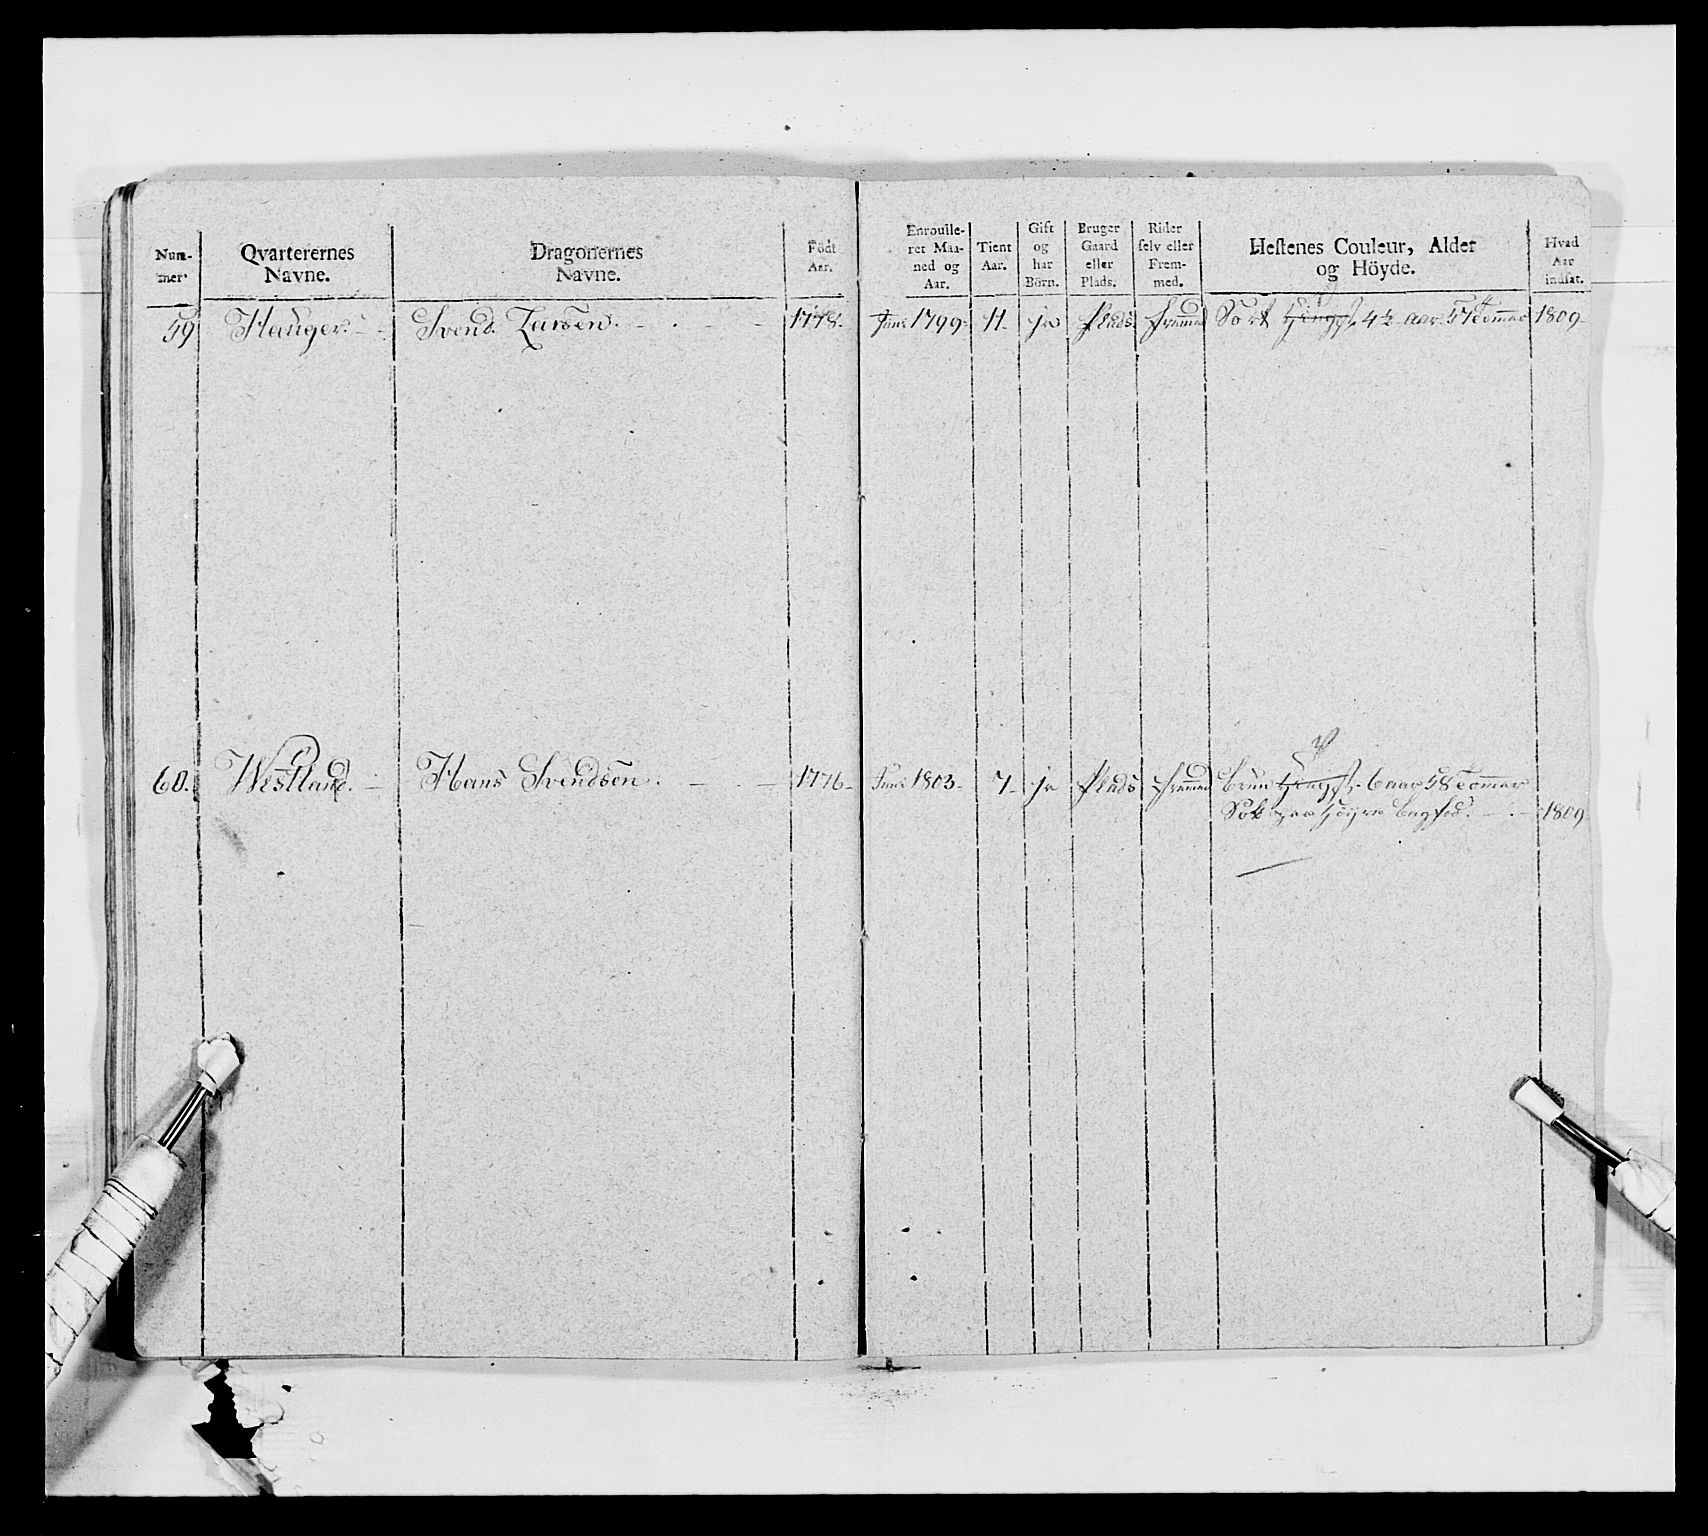 Num-
mer. Qvarterernes
Navne. Dragonernes
Navne. Födt
Aar. Enroulle-
ret Maa-
ned og
Aar. Tient
Aar. Gift
og
har
Börn. Bruger
Gaard
eller
Plads. Rider
selv eller
Frem-
med. Hestenes Couleur, Alder
og Höyde. Hvad
Aar
indsat.
59 Hauger. Svend Larsen. 1778. Juni 1799. 11. ja Plads fremmed Sort Hingst 4½ aar 57 tommer 1809
60. Westland. Hans Svendsen. 1776 Juni 1803. 7 ja Plads fremmed Brun Hingst. 6 aar 58 tommer
Höyre bagfod. 1809